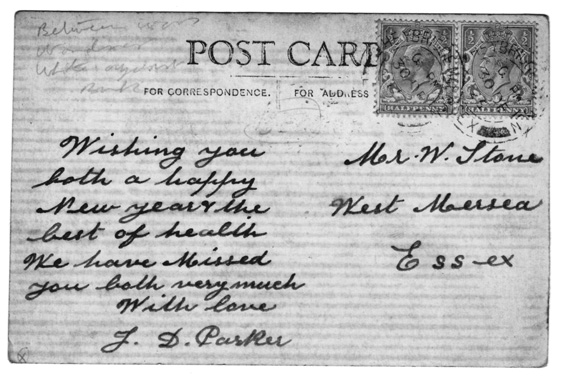 Between wars
POST CARD
FOR CORRESPONDENCE.
FOR ADDRESS
HALFPENNY
HALFPENNY
Wishing you
both a happy
New year & the
best of health
We have Missed
you both very much
With love
J. D. Parker
Mr. W. Stone
West Mersea
Essex